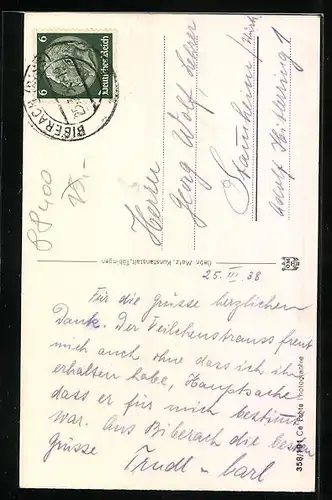 6 Deutsches Reich 6
BIBERACH (RISS)
Herrn
Georg Wolf, Lehrer
Stammheim/
Adolf Hitlerring 1
Gebr. Metz, Kunstanstalt, Tübingen
25. III. 38
Für die Grüsse herzlichen
Dank. Der Veilchenstrauss freut
mich auch ohne dass ich ihn
erhalten habe, Hauptsache
dass er für mich bestimmt
war. Aus Biberach die besten
Grüsse Trudl - Carl
358/191 Ce Echte Photographie